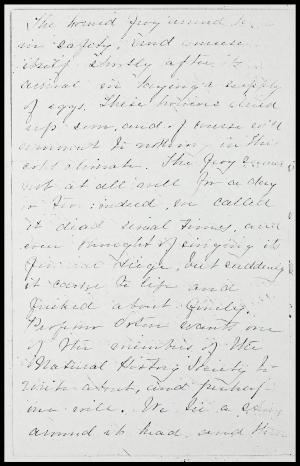 The horned frog arrived
in safety, and
itself shortly after its
arrival in laying a supply
of eggs. These however dried
up soon, and of course will
amount to nothing in this
cold climate. The frog
not at all well for a day
or two: indeed, we called
it dead several times, and
even thought of singing its
funeral dirge, but suddenly
it came to life and
kicked about finely.
Professor Orton wants one
of the members of the
Natural History Society to
write about, and perhaps
one will. We tie a
around its head, and